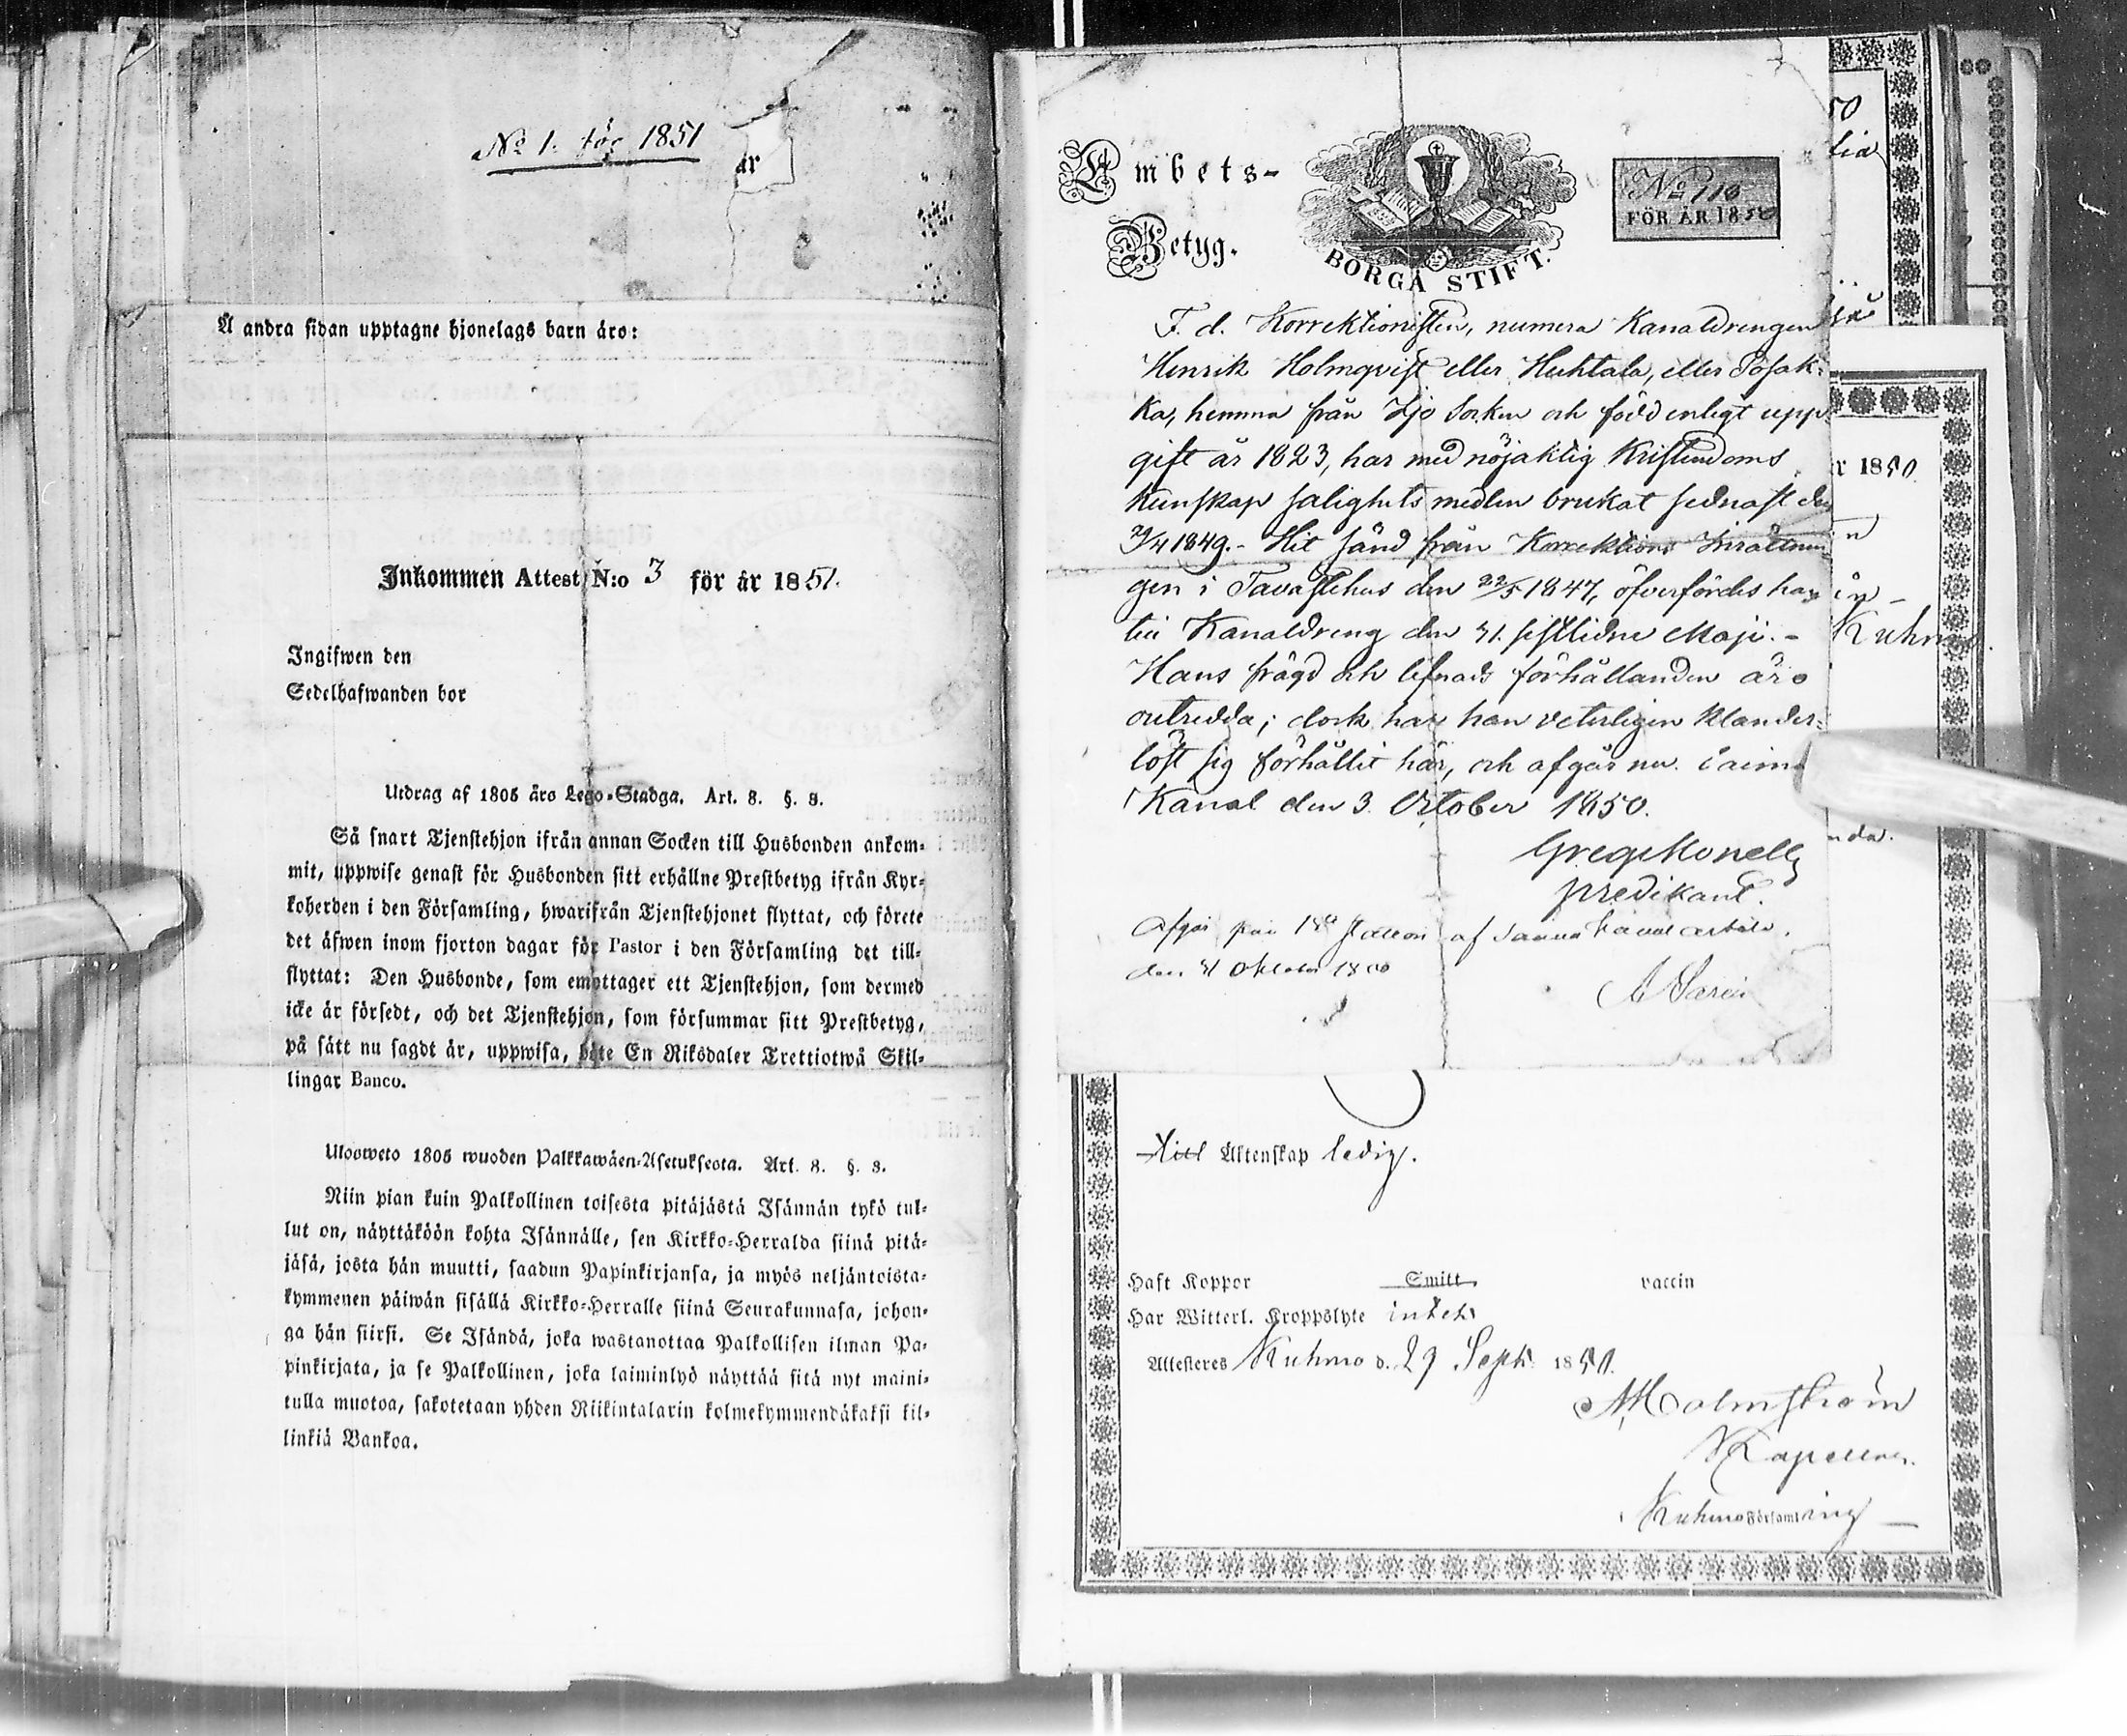 No 1. för 1851
är
Å andra sidan upptagne hjonelags barn äro:
Inkommen Attest N:o 3 för år 1851.
Ingifwen den
Sedelhafwanden bor
Utdrag af 1805 års Lego-Stadga. Art. 8. §. 8.
Så snart Tjenstehjon ifrån annan Socken till Husbonden ankom-
mit, uppwise genast för Husbonden sitt erhållne Prestbetyg ifrån Kyr-
koherden i den Församling, hwarifrån Tjenstehjonet flyttat, och förete
det äfwen inom fjorton dagar för Pastor i den Församling det till-
flyttat: Den Husbonde, som emottager ett Tjenstehjon, som dermed
icke är försedt, och det Tjenstehjon, som försummar sitt Prestbetyg,
på sätt nu sagdt är, uppwisa, böte En Riksdaler Trettiotwå Skil-
lingar Banco.
Ulosweto 1805 wuoden Palkkawäen-Asetuksesta. Art. 8. §. 8.
Niin pian kuin Palkollinen toisesta pitäjästä Isännän tykö tul-
lut on, näyttäköön kohta Isännälle, sen Kirkko-Herralda siinä pitä-
jäsä, josta hän muutti, saadun Papinkirjansa, ja myös neljäntoista-
kymmenen päiwän sisällä Kirkko-Herralle siinä Seurakunnasa, johon-
ga hän siirsi. Se Isändä, joka wastanottaa Palkollisen ilman Pa-
pinkirjata, ja se Palkollinen, joka laiminlyö näyttää sitä nyt maini-
tulla muotoa, sakotetaan yhden Riikintalarin kolmekymmendäkaksi kil-
linkiä Bankoa.
Embets-
Betyg.
BORGÅ STIFT.
No 110
FÖR ÅR 1850
F. d. Korrektionisten, numera Kanaldrengen
Henrik Holmqvist eller Huhtala, eller Posak-
ka, hemma från Ijo Socken och född enligt upp-
gift år 1823, har med nöjaktig Kristendoms
kunskap salighets medlen brukat sednast den
/4 1849. - Hit sänd från Korrektions Inrättnin
gen i Tavastehus den 22/5 1847, öfverfördes han
till Kanaldreng den 31. sistlidne Maji. -
Hans frägd och lefnads förhållanden äro
outredda; dock har han veterligen klander-
löst sig förhållit här, och afgår nu. Saima
Kanal den 3. October 1850.
Greg Monell
predikant.
Afgår från station af Saima Kanal arbete.
den 31 Oktober 1850
50
r 1850
Kuhmo
nda.
till Äktenskap ledig.
Haft Koppor Smitt vaccin
Har Witterl. Kroppslyte intet
Attesteras Kuhmo d. 29 Sept. 1850.
Holmström
Kapellan
Kuhmo Församling